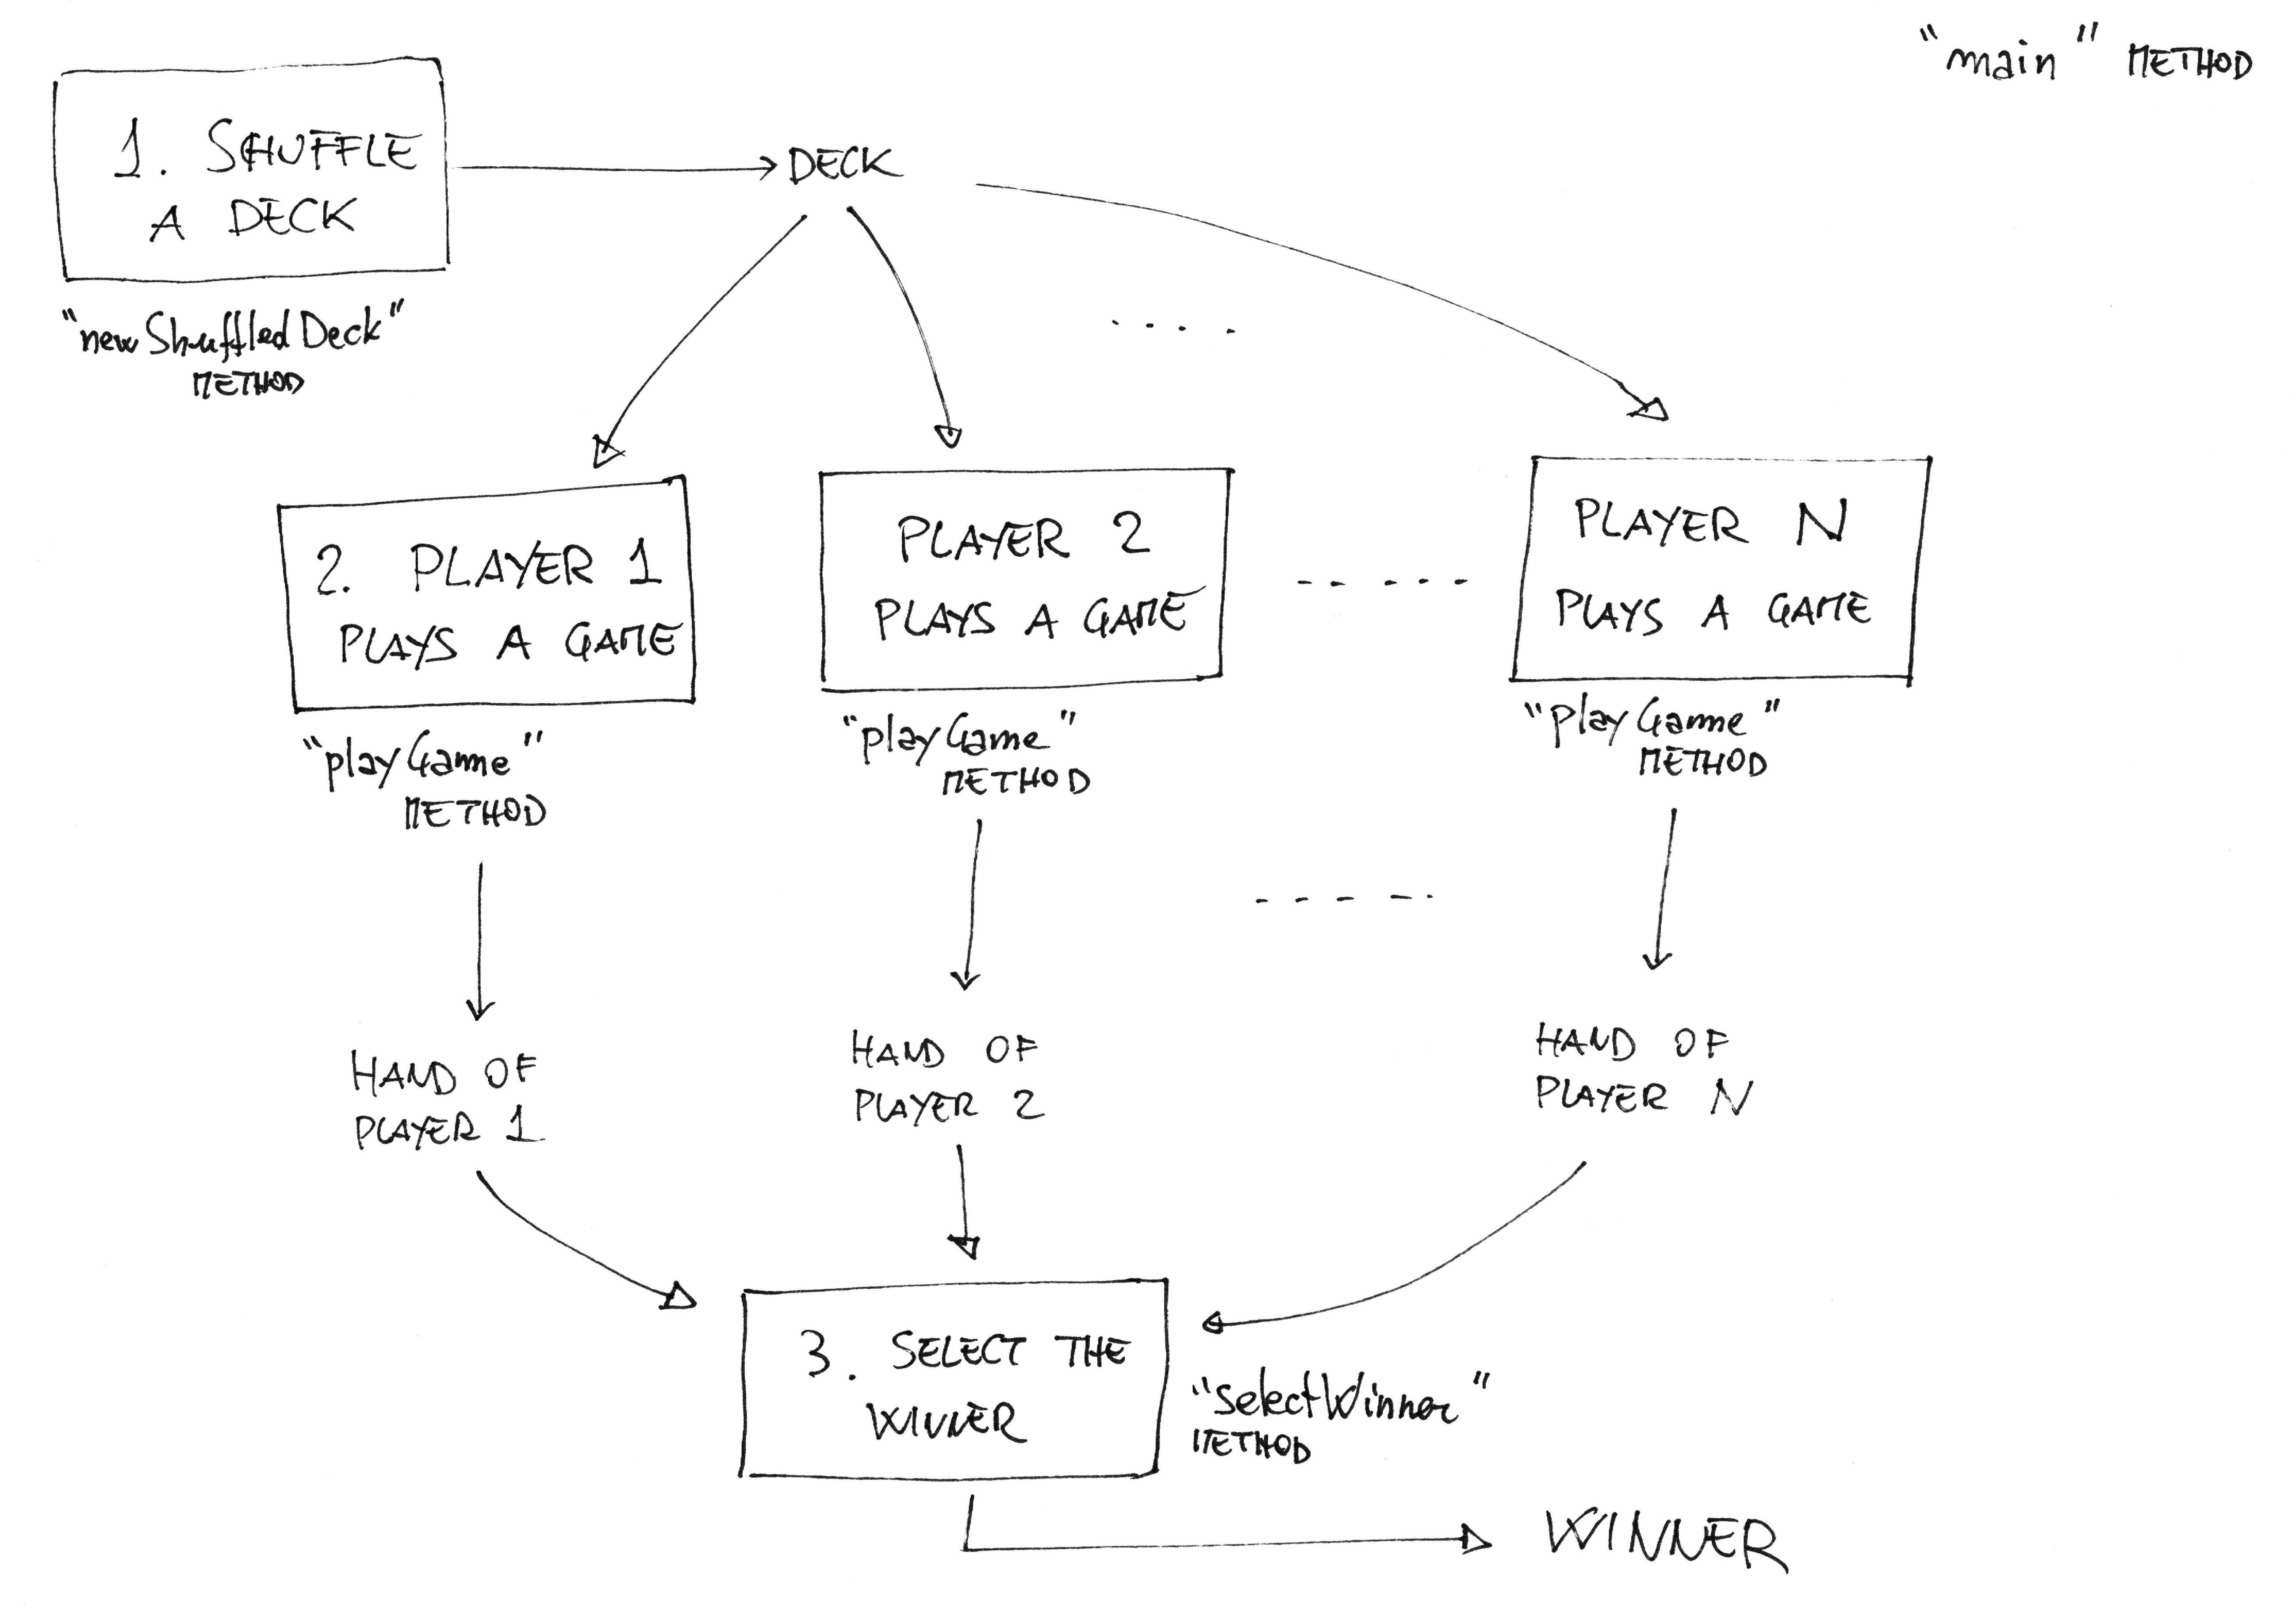 "main" METHOD
1. SHUFFLE
A DECK
DECK
"newShuffledDeck"
METHOD
2. PLAYER 1
PLAYS A GAME
PLAYER 2
PLAYS A GAME
PLAYER N
PLAYS A GAME
"playGame"
METHOD
"playGame"
METHOD
"playGame"
METHOD
HAND OF
PLAYER 1
HAND OF
PLAYER 2
HAND OF
PLAYER N
3. SELECT THE
WINNER
"selectWinner"
METHOD
WINNER